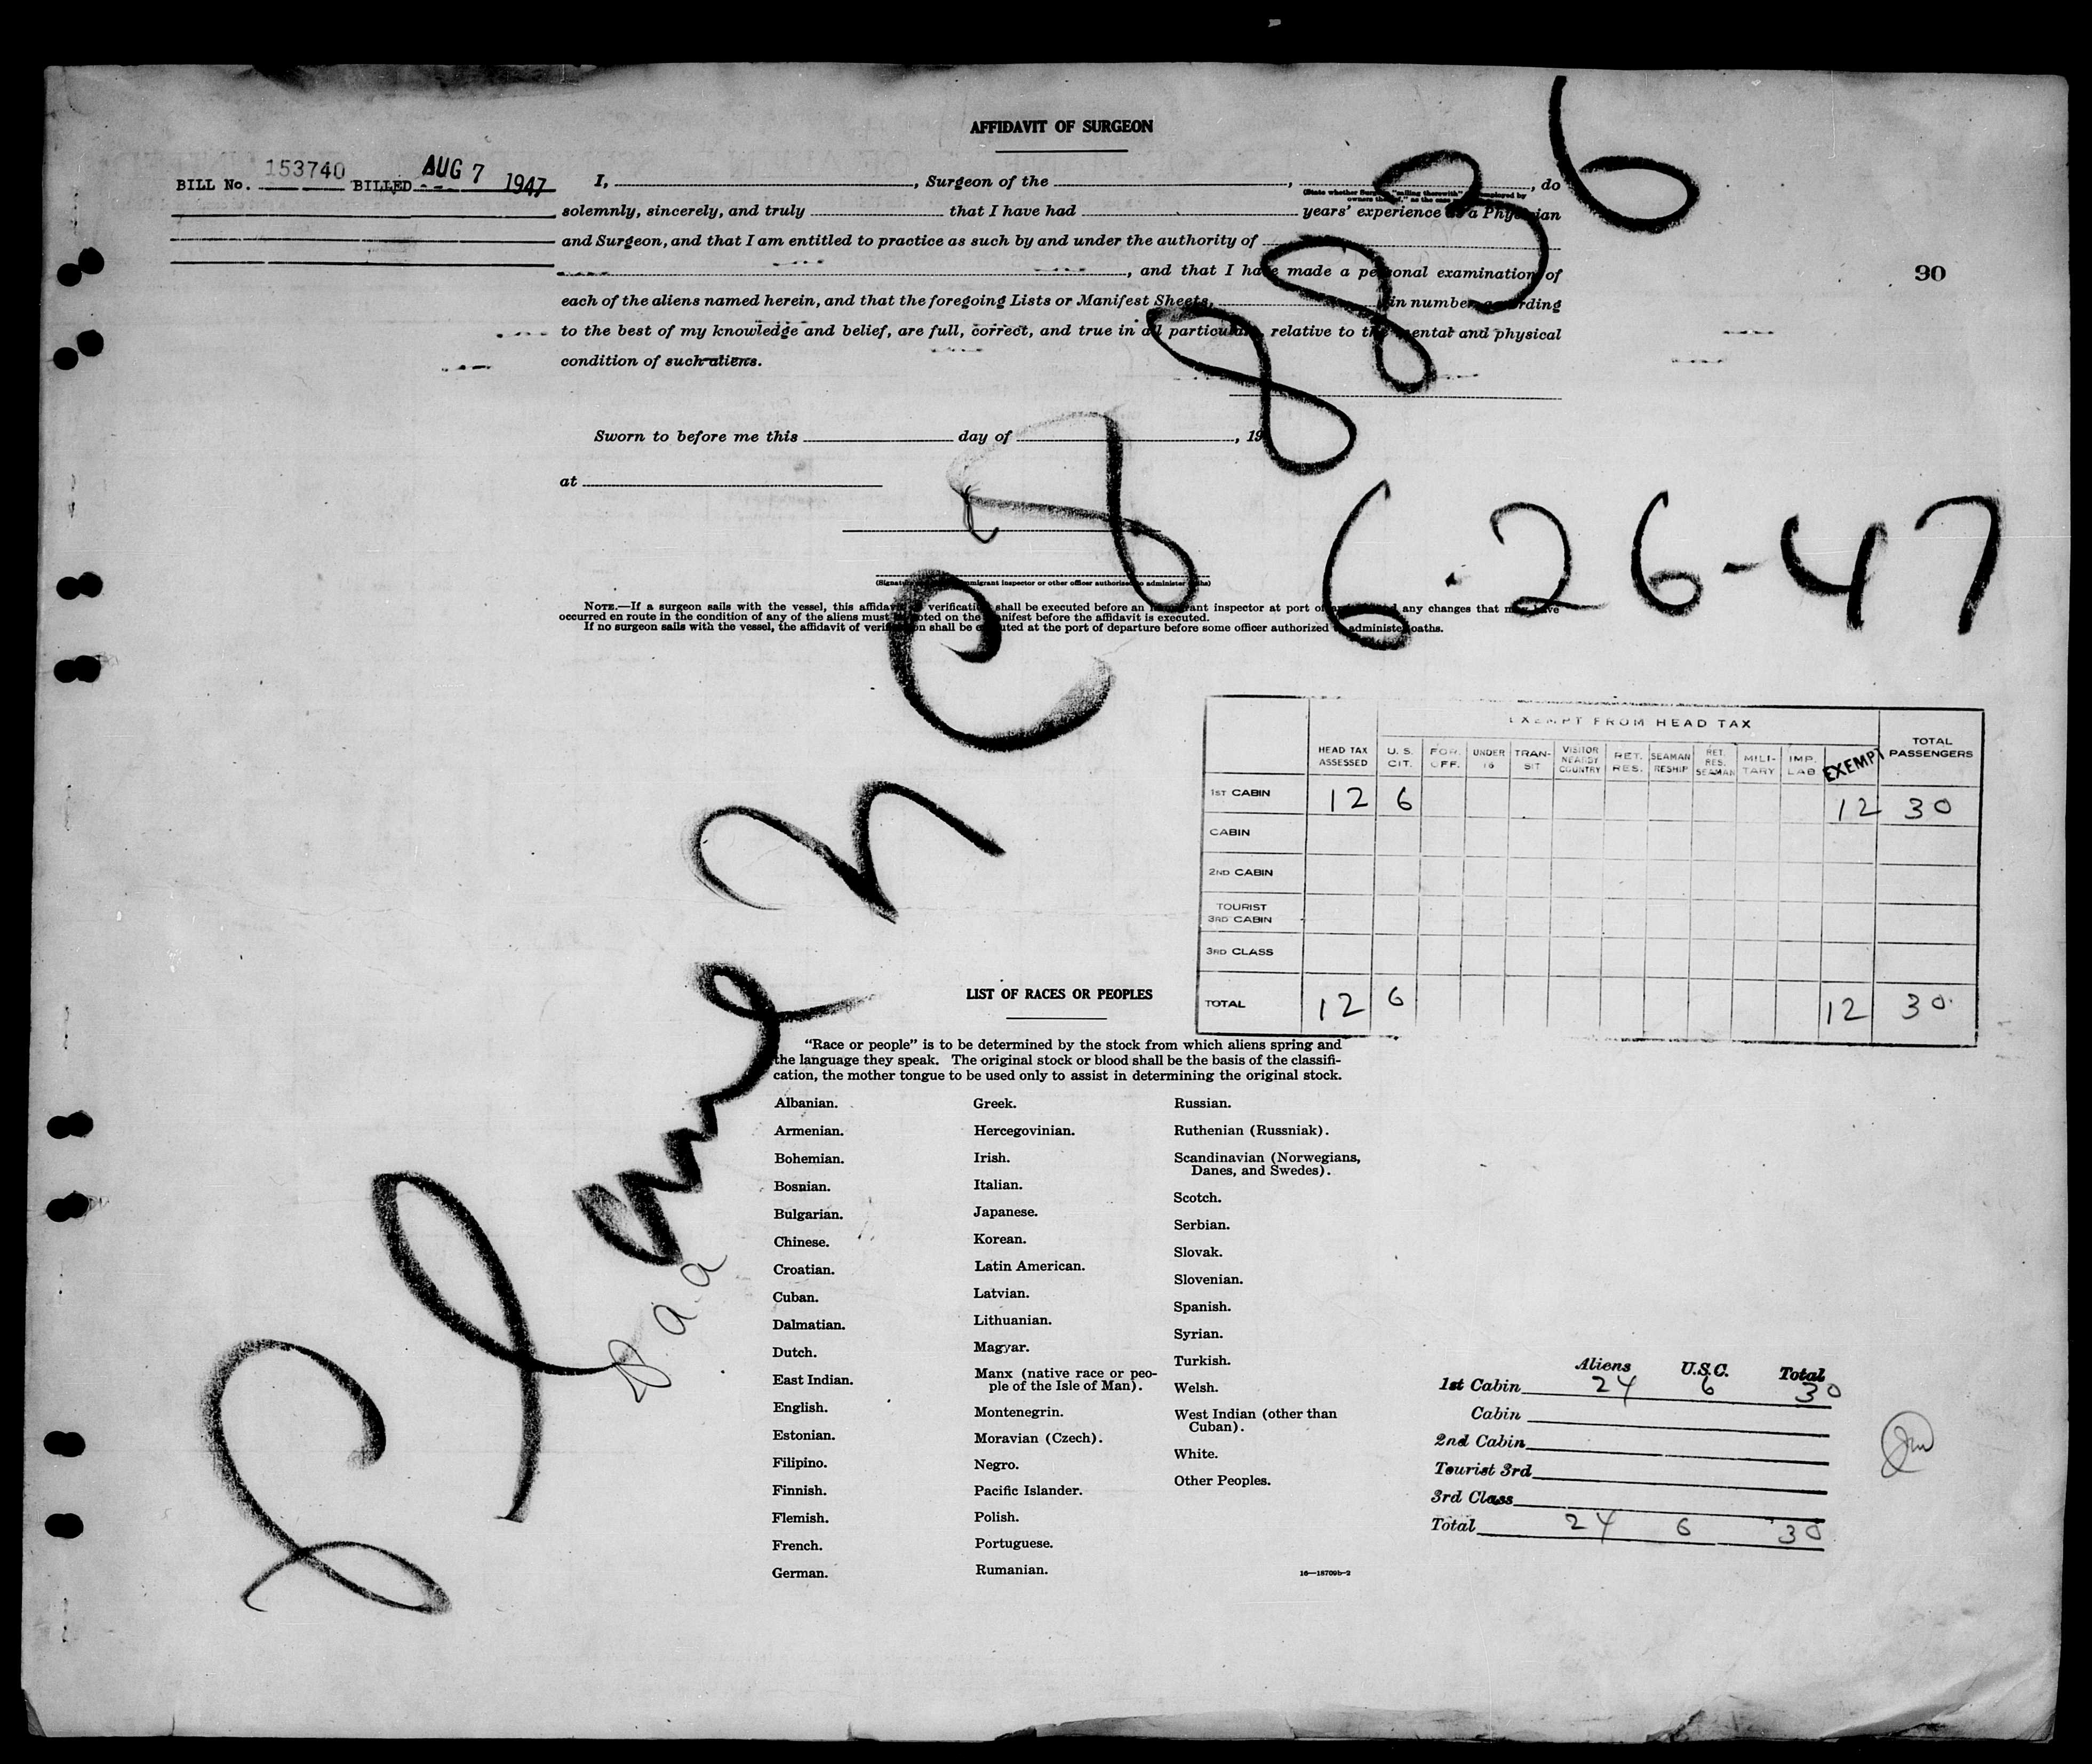 AFFIDAVIT OF SURGEON
BILL No. 153740 BILLED AUG 7 1947
I, , Surgeon of the , , do
solemnly, sincerely, and truly that I have had years' experience as a Physician
and Surgeon, and that I am entitled to practice as such by and under the authority of
, and that I have made a personal examination of
30
each of the aliens named herein, and that the foregoing Lists or Manifest Sheets, in number, according
to the best of my knowledge and belief, are full, correct, and true in all particulars relative to the mental and physical
condition of such aliens.
Sworn to before me this day of , 19
at
(Signature immigrant inspector or other officer authorized to administer oaths)
NOTE.—If a surgeon sails with the vessel, this affidavit verification shall be executed before an immigrant inspector at port of any changes that may have
occurred en route in the condition of any of the aliens must be noted on the manifest before the affidavit is executed.
If no surgeon sails with the vessel, the affidavit of verification shall be executed at the port of departure before some officer authorized to administer oaths.
88836
6-26-47
EXEMPT FROM HEAD TAX
HEAD TAX ASSESSED U. S. CIT. FOR. OFF. UNDER 16 TRANSIT VISITOR NEARBY COUNTRY RET. RES. SEAMAN RESHIP RET. RES. SEAMAN MILITARY IMP. LAB EXEMPT TOTAL PASSENGERS
1ST CABIN 12 6 12 30
CABIN
2ND CABIN
TOURIST 3RD CABIN
3RD CLASS
TOTAL 12 6 12 30
LIST OF RACES OR PEOPLES
"Race or people" is to be determined by the stock from which aliens spring and
the language they speak. The original stock or blood shall be the basis of the classifi-
cation, the mother tongue to be used only to assist in determining the original stock.
Albanian.
Armenian.
Bohemian.
Bosnian.
Bulgarian.
Chinese.
Croatian.
Cuban.
Dalmatian.
Dutch.
East Indian.
English.
Estonian.
Filipino.
Finnish.
Flemish.
French.
German.
Greek.
Hercegovinian.
Irish.
Italian.
Japanese.
Korean.
Latin American.
Latvian.
Lithuanian.
Magyar.
Manx (native race or peo-
ple of the Isle of Man).
Montenegrin.
Moravian (Czech).
Negro.
Pacific Islander.
Polish.
Portuguese.
Rumanian.
Russian.
Ruthenian (Russniak).
Scandinavian (Norwegians,
Danes, and Swedes).
Scotch.
Serbian.
Slovak.
Slovenian.
Spanish.
Syrian.
Turkish.
Welsh.
West Indian (other than
Cuban).
White.
Other Peoples.
16—18709b-2
Aliens U.S.C. Total
1st Cabin 24 6 30
Cabin
2nd Cabin
Tourist 3rd
3rd Class
Total 24 6 30